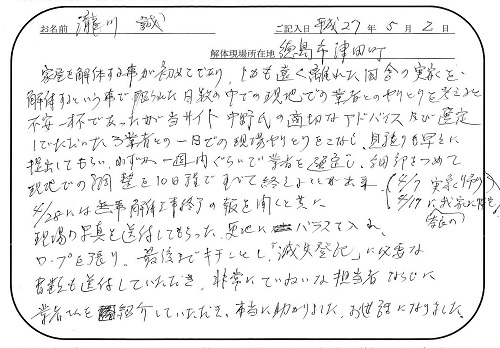 お名前 瀧川 誠 ご記入日 平成27年5月2日
解体現場所在地 徳島市津田町
家屋を解体する事が初めてであり、しかも遠く離れた田舎の実家を、
解体するという事で限られた日数の中での現地での業者とのやりとりを考えると
不安一杯であったが当サイト中野氏の適切なアドバイス及び選定
していただいた3業者との一日での現場やりとりをこなし、見積りも早々に
提出してもらい、わずか一週内ぐらいで業者を選定し、細部をつめて
現地での調整を10日程ですべて終えることが出来、(4/7 実家
4/17 に我家に帰宅
4/28には無事解体工事終了の報を聞くと共に
現場の写真を送付してもらった。更地にバラスを入れ、
ロープを張り、最後までキチンとし「滅失登記」に必要な
書類も送付していただき、非常にていねいな担当者ならびに
業者さんを紹介していただき、本当に助かりました。お世話になりました。